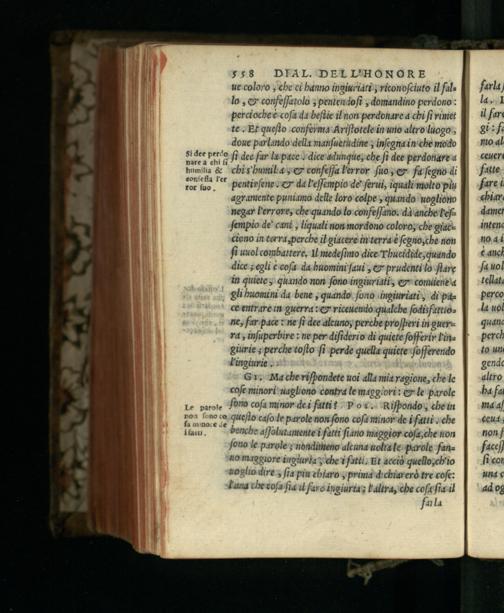 558 DIAL. DELL'HONORE
ue coloro, che ci hanno ingiuriati, riconosciuto il fal-
lo, & confessatolo, pentendosi, domandino perdono:
percioche è cosa da bestie il non perdonare a chi si rimet
te. Et questo conferma Aristotele in uno altro luogo,
doue parlando della mansuetudine, insegna in che modo
si dee far la pace. dice adunque, che si dee perdonare a
chi s'humilia, & confessa l'error suo, & fa segno di
pentirsene. & dà l'essempio de' serui, iquali molto più
agramente puniamo delle loro colpe, quando uogliono
negar l'errore, che quando lo confessano. dà anche l'es-
sempio de' cani, liquali non mordono coloro, che giac-
ciono in terra, perche il giacere in terra è segno, che non
si uuol combattere. Il medesimo dice Thucidide, quando
dice, egli è cosa da huomini saui, & prudenti lo stare
in quiete, quando non sono ingiuriati, & conuiene à
gli huomini da bene, quando sono ingiuriati, di pa-
ce entrare in guerra: & riceuendo qualche sodisfattio-
ne, far pace: ne si dee alcuno, perche prosperi in guer-
ra, insuperbire: ne per disiderio di quiete sofferir l'in-
giurie; perche tosto si perde quella quiete sofferendo
l'ingiurie.
GI. Ma che rispondete uoi alla mia ragione, che le
cose minori uagliono contra le maggiori: & le parole
sono cosa minor de i fatti? POS. Rispondo, che in
questo caso le parole non sono cosa minor de i fatti. che
benche assolutamente i fatti siano maggior cosa, che non
sono le parole; nondimeno alcuna uolta le parole fan-
no maggiore ingiuria, che i fatti. Et acciò quello, ch'io
uoglio dire, sia più chiaro, prima dichiarerò tre cose:
l'una che cosa sia il fare ingiuria; l'altra, che cosa sia il
farla
Si dee perdo
nare a chi si
humilia &
confessa l'er
ror suo.
Le parole
non sono co
sa minore de
i fatti.